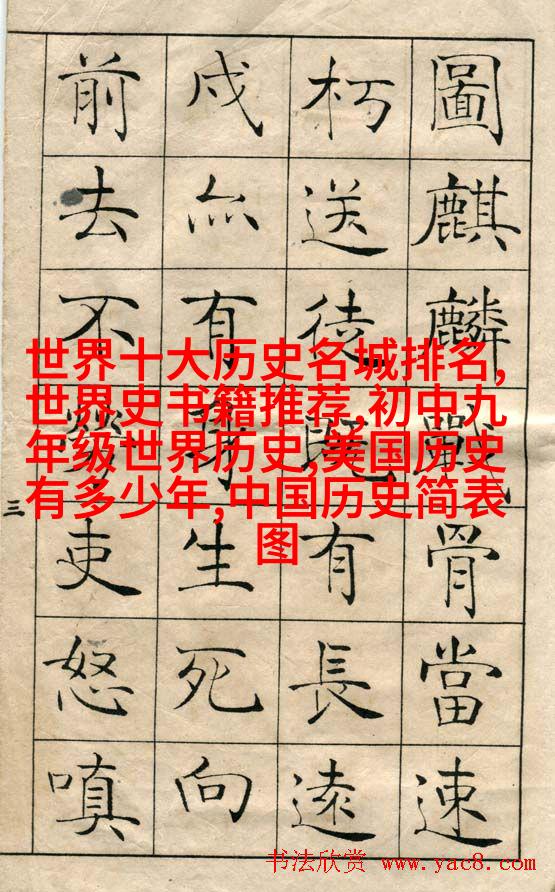 圖麒麟戰骨當速
朽送徒既有長遠
戍亦有身生死向
前去不勞吏怒嗔
三
世界十大历史名城排名,
世界史书籍推荐,初中九
年级世界历史,美国历史
有多少年,中国历史简表
图
书法欣赏 www.yac8.com